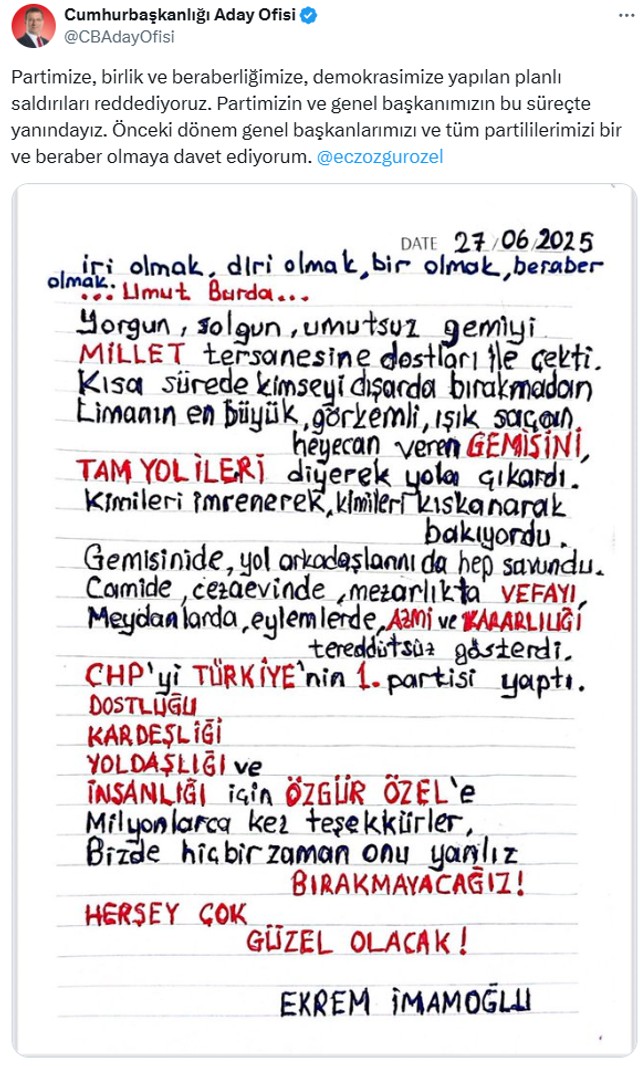 Cumhurbaşkanlığı Aday Ofisi
@CBAdayOfisi
Partimize, birlik ve beraberliğimize, demokrasimize yapılan planlı
saldırıları reddediyoruz. Partimizin ve genel başkanımızın bu süreçte
yanındayız. Önceki dönem genel başkanlarımızı ve tüm partililerimizi bir
ve beraber olmaya davet ediyorum. @eczozgurozel
DATE 27/06/2025
iri olmak, diri olmak, bir olmak, beraber
olmak.
... Umut Burda...
Yorgun, solgun, umutsuz gemiyi
MİLLET tersanesine dostları ile çekti.
Kısa sürede kimseyi dışarda bırakmadan
Limanın en büyük, görkemli, ışık saçan,
heyecan veren GEMİSİNİ,
TAM YOL İLERİ diyerek yola çıkardı.
Kimileri imrenerek, kimileri kıskanarak
bakıyordu.
Gemisinide, yol arkadaşlarını da hep savundu.
Camide, cezaevinde, mezarlıkta VEFAYI,
Meydanlarda, eylemlerde, AZMİ ve KARARLILIĞI
tereddütsüz gösterdi.
CHP'yi TÜRKİYE'nin 1. partisi yaptı.
DOSTLUĞU
KARDEŞLİĞİ
YOLDAŞLIĞI ve
İNSANLIĞI için ÖZGÜR ÖZEL'e
Milyonlarca kez teşekkürler,
Bizde hiçbir zaman onu yanlız
BIRAKMAYACAĞIZ!
HERŞEY ÇOK
GÜZEL OLACAK!
EKREM İMAMOĞLU